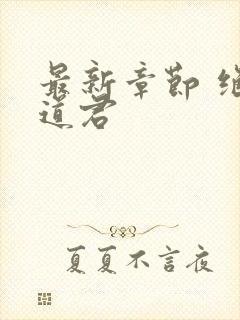 最新章節 繼
道君
夏夏不言夜